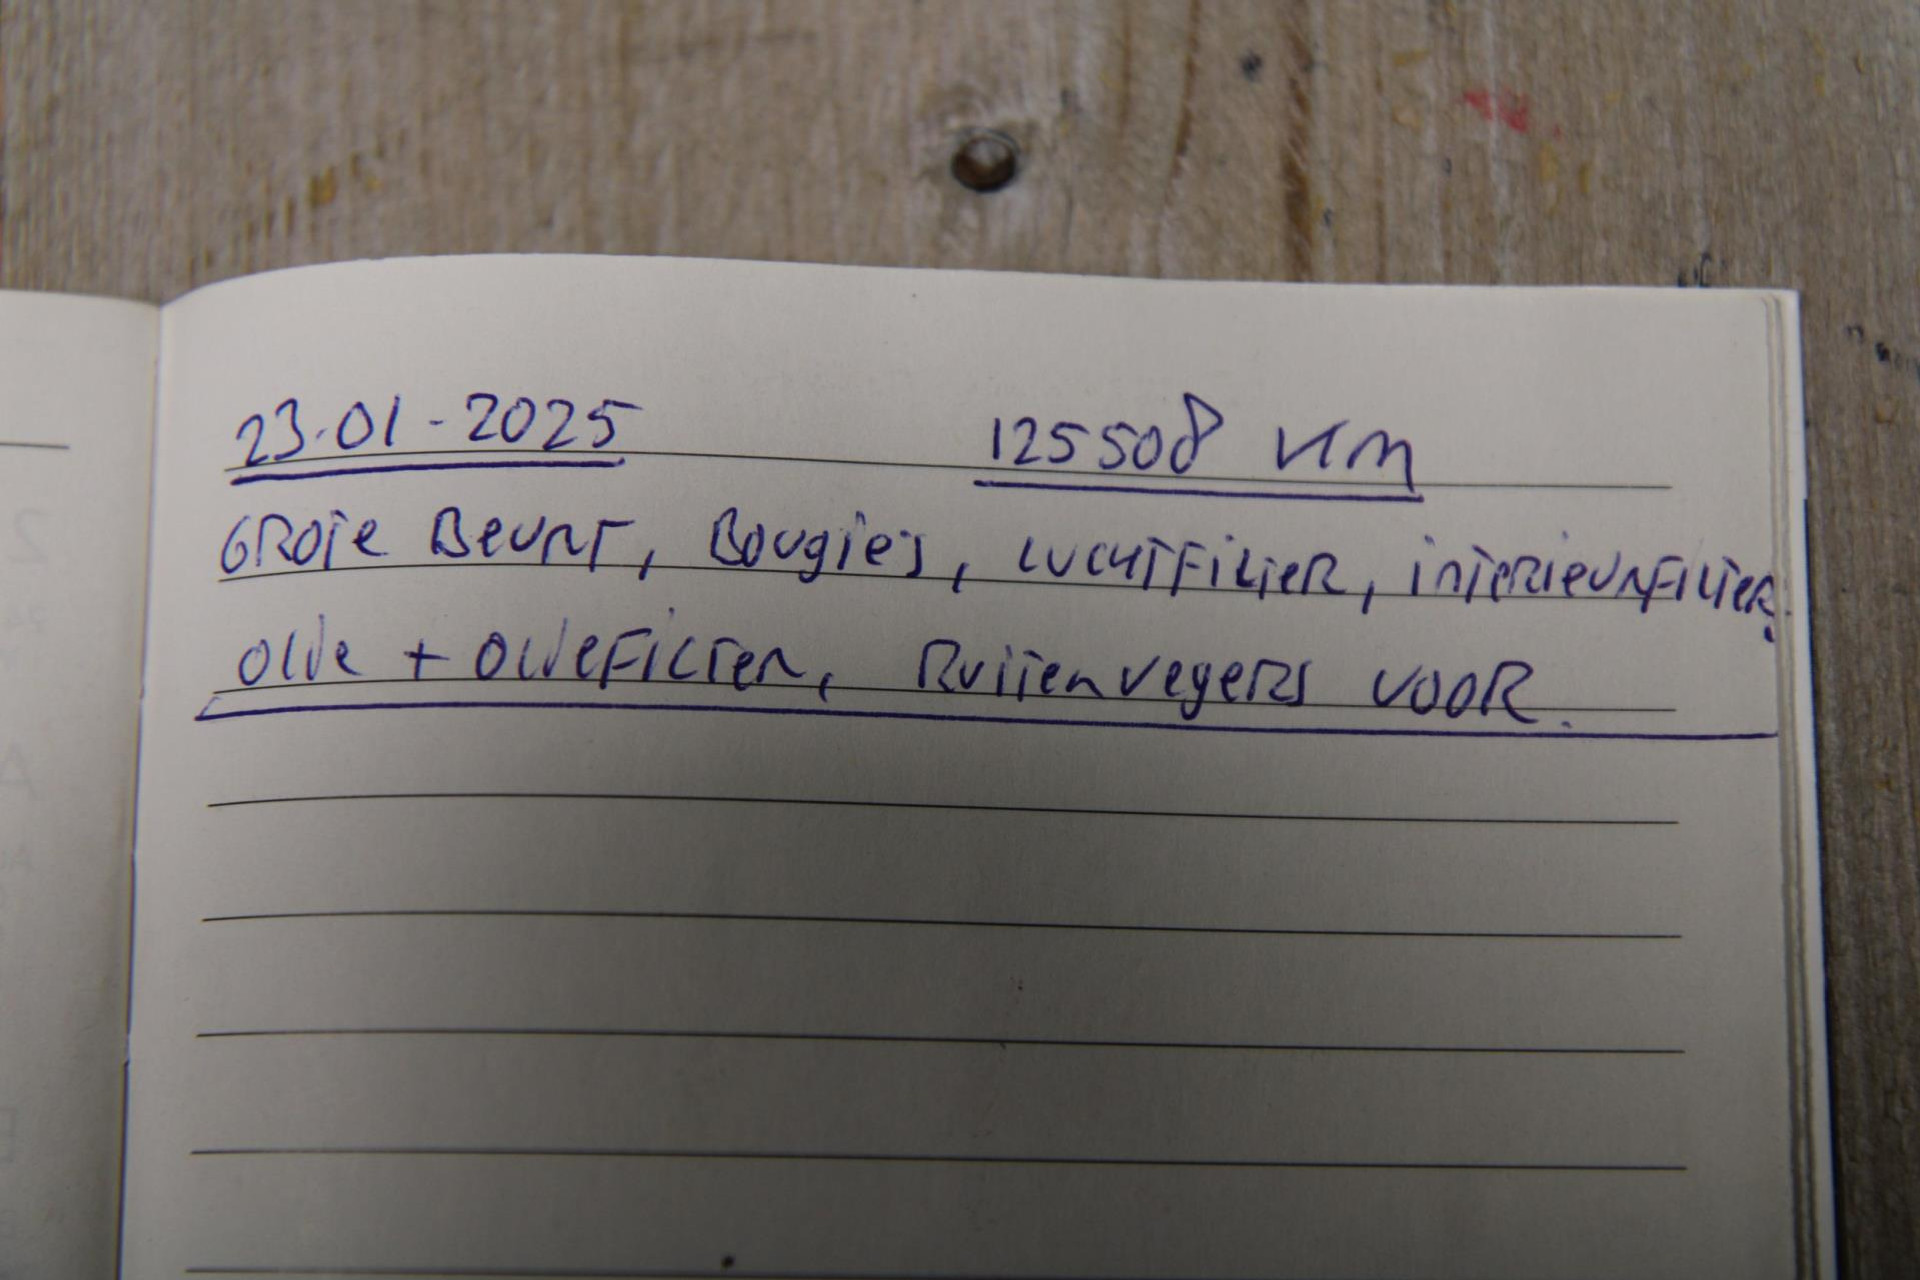 23-01-2025 125508 KM
GROTE BEURT, BOUGIES, LUCHTFILTER, iNTERIEURFILTER,
OLIE + OLIEFILTER, RUITENVEGERS VOOR.